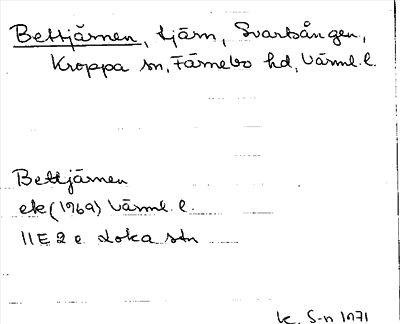 Bettjärnen, tjärn, Svartsången,
Kroppa sn, Färnebo hd, Värml. l.
Bettjärnen
ek (1969) Värml. l.
11E 2 e Loka stn
K. S-n 1971